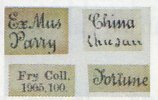 Ex. Mus
Parry
China
Chusan
Fry Coll.
1905,100.
Fortune